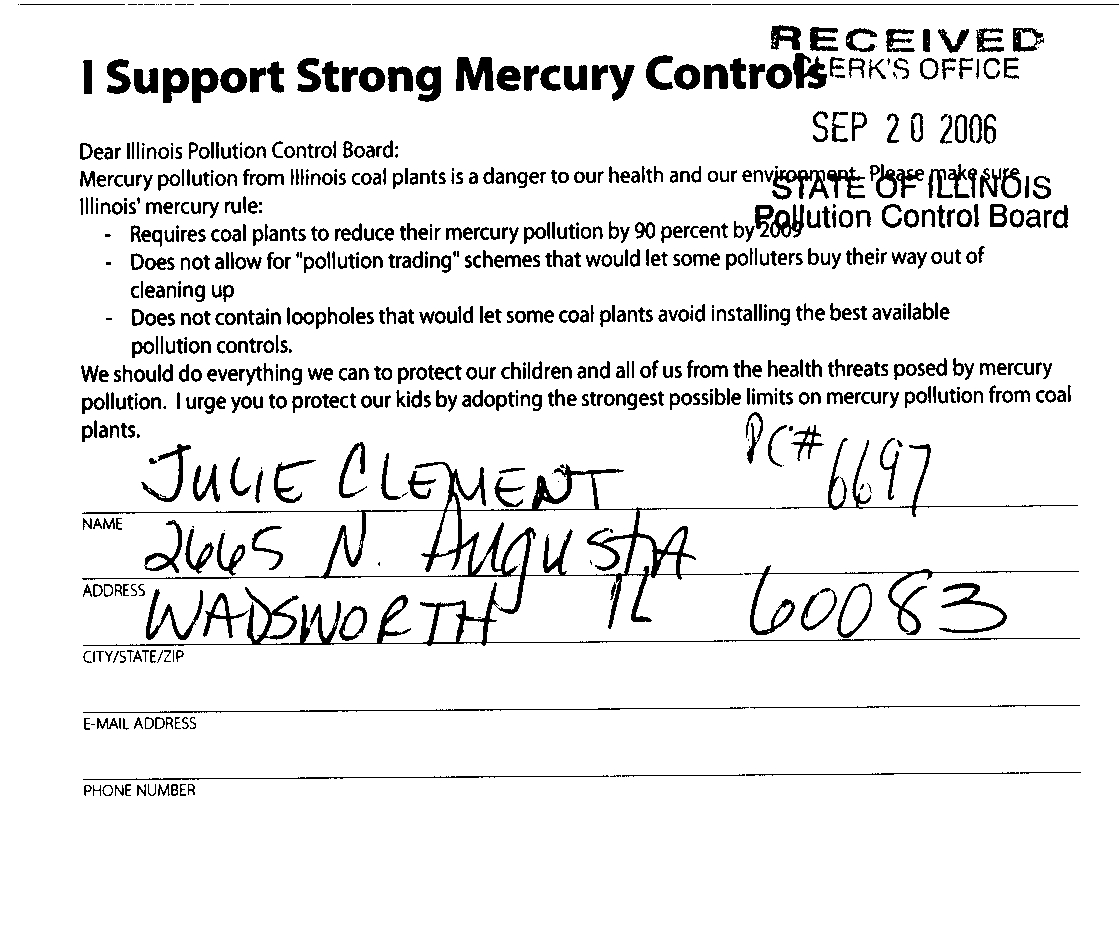 RECEIVED
CLERK'S OFFICE
I Support Strong Mercury Controls
SEP 20 2006
Dear Illinois Pollution Control Board:
Mercury pollution from Illinois coal plants is a danger to our health and our environment. Please make sure
STATE OF ILLINOIS
Illinois' mercury rule:
Pollution Control Board
- Requires coal plants to reduce their mercury pollution by 90 percent by 2009
- Does not allow for "pollution trading" schemes that would let some polluters buy their way out of
cleaning up
- Does not contain loopholes that would let some coal plants avoid installing the best available
pollution controls.
We should do everything we can to protect our children and all of us from the health threats posed by mercury
pollution. I urge you to protect our kids by adopting the strongest possible limits on mercury pollution from coal
plants.
PC# 6697
JULIE CLEMENT
NAME
2665 N. AUgUStA
ADDRESS
WADSWORTH IL 60083
CITY/STATE/ZIP
E-MAIL ADDRESS
PHONE NUMBER